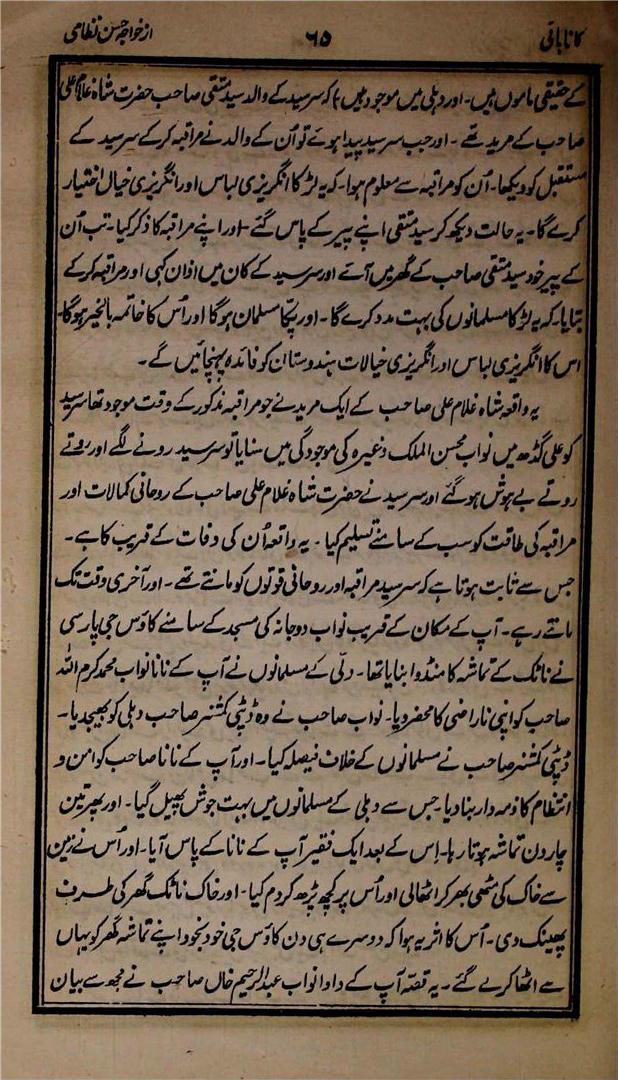 کانا باتی ۶۵ از خواجہ حسن نظامی
کے حقیقی ماموں ہیں۔ اور دہلی میں موجود ہیں) کہ سرسید کے والد سید متقی صاحب حضرت شاہ غلام علی
صاحب کے مرید تھے ۔ اور جب سرسید پیدا ہوئے تو اُن کے والد نے مراقبہ کرکے سرسید کے
مستقبل کو دیکھا۔ اُن کو مراقبہ سے معلوم ہوا۔ کہ یہ لڑکا انگریزی لباس اور انگریزی خیال اختیار
کرے گا۔ یہ حالت دیکھ کر سید متقی اپنے پیر کے پاس گئے۔ اور اپنے مراقبہ کا ذکر کیا۔ تب اُن
کے پیر خود سید متقی صاحب کے گھر میں آئے اور سرسید کے کان میں اذان کہی اور مراقبہ کرکے
بتایا۔ کہ یہ لڑکا مسلمانوں کی بہت مدد کرے گا۔ اور پکّا مسلمان ہوگا اور اُس کا خاتمہ بالخیر ہوگا۔
اس کا انگریزی لباس اور انگریزی خیالات ہندوستان کو فائدہ پہنچائیں گے۔
یہ واقعہ شاہ غلام علی صاحب کے ایک مرید نے جو مراقبہ مذکور کے وقت موجود تھا سرسید
کو علی گڈھ میں نواب محسن الملک وغیرہ کی موجودگی میں سنایا تو سرسید رونے لگے اور روتے
روتے بے ہوش ہوگئے اور سرسید نے حضرت شاہ غلام علی صاحب کے روحانی کمالات اور
مراقبہ کی طاقت کو سب کے سامنے تسلیم کیا ۔ یہ واقعہ اُن کی وفات کے قریب کا ہے۔
جس سے ثابت ہوتا ہے کہ سرسید مراقبہ اور روحانی قوتوں کو مانتے تھے۔ اور آخری وقت تک
مانتے رہے۔ آپ کے مکان کے قریب نواب دوجانہ کی مسجد کے سامنے کاؤس جی پارسی
نے ناٹک کے تماشہ کا منڈوا بنایا تھا۔ دلّی کے مسلمانوں نے آپ کے نانا نواب محمد کرم اللہ
صاحب کو اپنی ناراضی کا محضر دیا۔ نواب صاحب نے وہ ڈپٹی کمشنر صاحب دہلی کو بھیجدیا۔
ڈپٹی کمشنر صاحب نے مسلمانوں کے خلاف فیصلہ کیا۔ اور آپ کے نانا صاحب کو امن و
انتظام کا ذمہ دار بنا دیا۔ جس سے دہلی کے مسلمانوں میں بہت جوش پھیل گیا۔ اور پھر تین
چار دن تماشہ ہوتا رہا۔ اِس کے بعد ایک فقیر آپ کے نانا کے پاس آیا۔ اور اُس نے زمین
سے خاک کی مٹھی بھر کر اٹھالی اور اُس پر کچھ پڑھ کر دم کیا۔ اور خاک ناٹک گھر کی طرف
پھینک دی۔ اُس کا اثر یہ ہوا کہ دوسرے ہی دن کاؤس جی خود بخود اپنے تماشہ گھر کو یہاں
سے اٹھا کر لے گئے۔ یہ قصّہ آپ کے دادا نواب عبدالرحیم خاں صاحب نے مجھ سے بیان